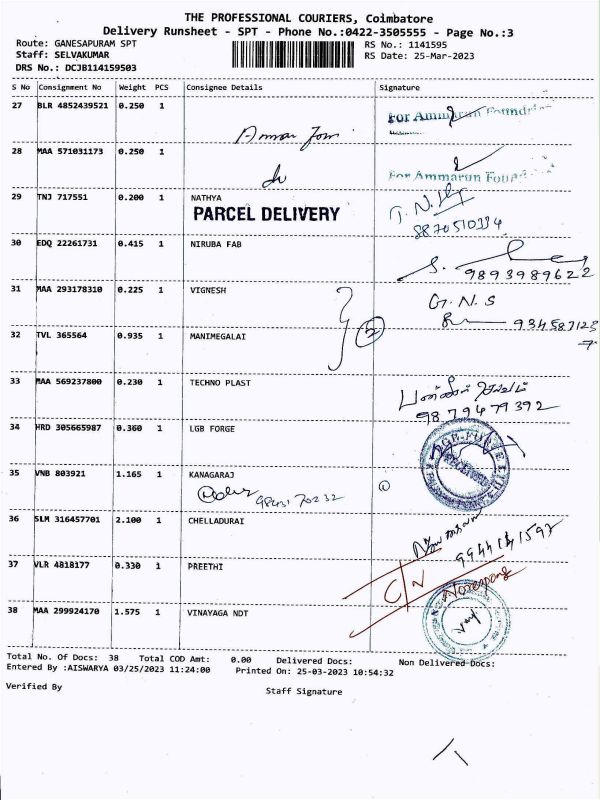 THE PROFESSIONAL COURIERS, Coimbatore
Delivery Runsheet - SPT - Phone No.:0422-3505555 - Page No.:3
Route: GANESAPURAM SPT
RS No.: 1141595
Staff: SELVAKUMAR
RS Date: 25-Mar-2023
DRS No.: DCJB114159503
S No Consignment No Weight PCS Consignee Details Signature
27 BLR 4852439521 0.250 1
For Ammarun Foundries
28 MAA 571031173 0.250 1
For Ammarun Found
29 TNJ 717551 0.200 1 NATHYA
PARCEL DELIVERY
8870510334
30 EDQ 22261731 0.415 1 NIRUBA FAB
9893989622
31 MAA 293178310 0.225 1 VIGNESH
G.N.S
934587123
7
2
32 TVL 365564 0.935 1 MANIMEGALAI
33 MAA 569237800 0.230 1 TECHNO PLAST
9879479392
34 HRD 305665987 0.360 1 LGB FORGE
RECEIVED
35 VNB 803921 1.165 1 KANAGARAJ
9843170232
1
36 SLM 316457701 2.100 1 CHELLADURAI
9944141597
37 VLR 4818177 0.330 1 PREETHI
C/N
38 MAA 299924170 1.575 1 VINAYAGA NDT
Total No. Of Docs: 38 Total COD Amt: 0.00 Delivered Docs: Non Delivered Docs:
Entered By :AISWARYA 03/25/2023 11:24:00 Printed On: 25-03-2023 10:54:32
Verified By
Staff Signature